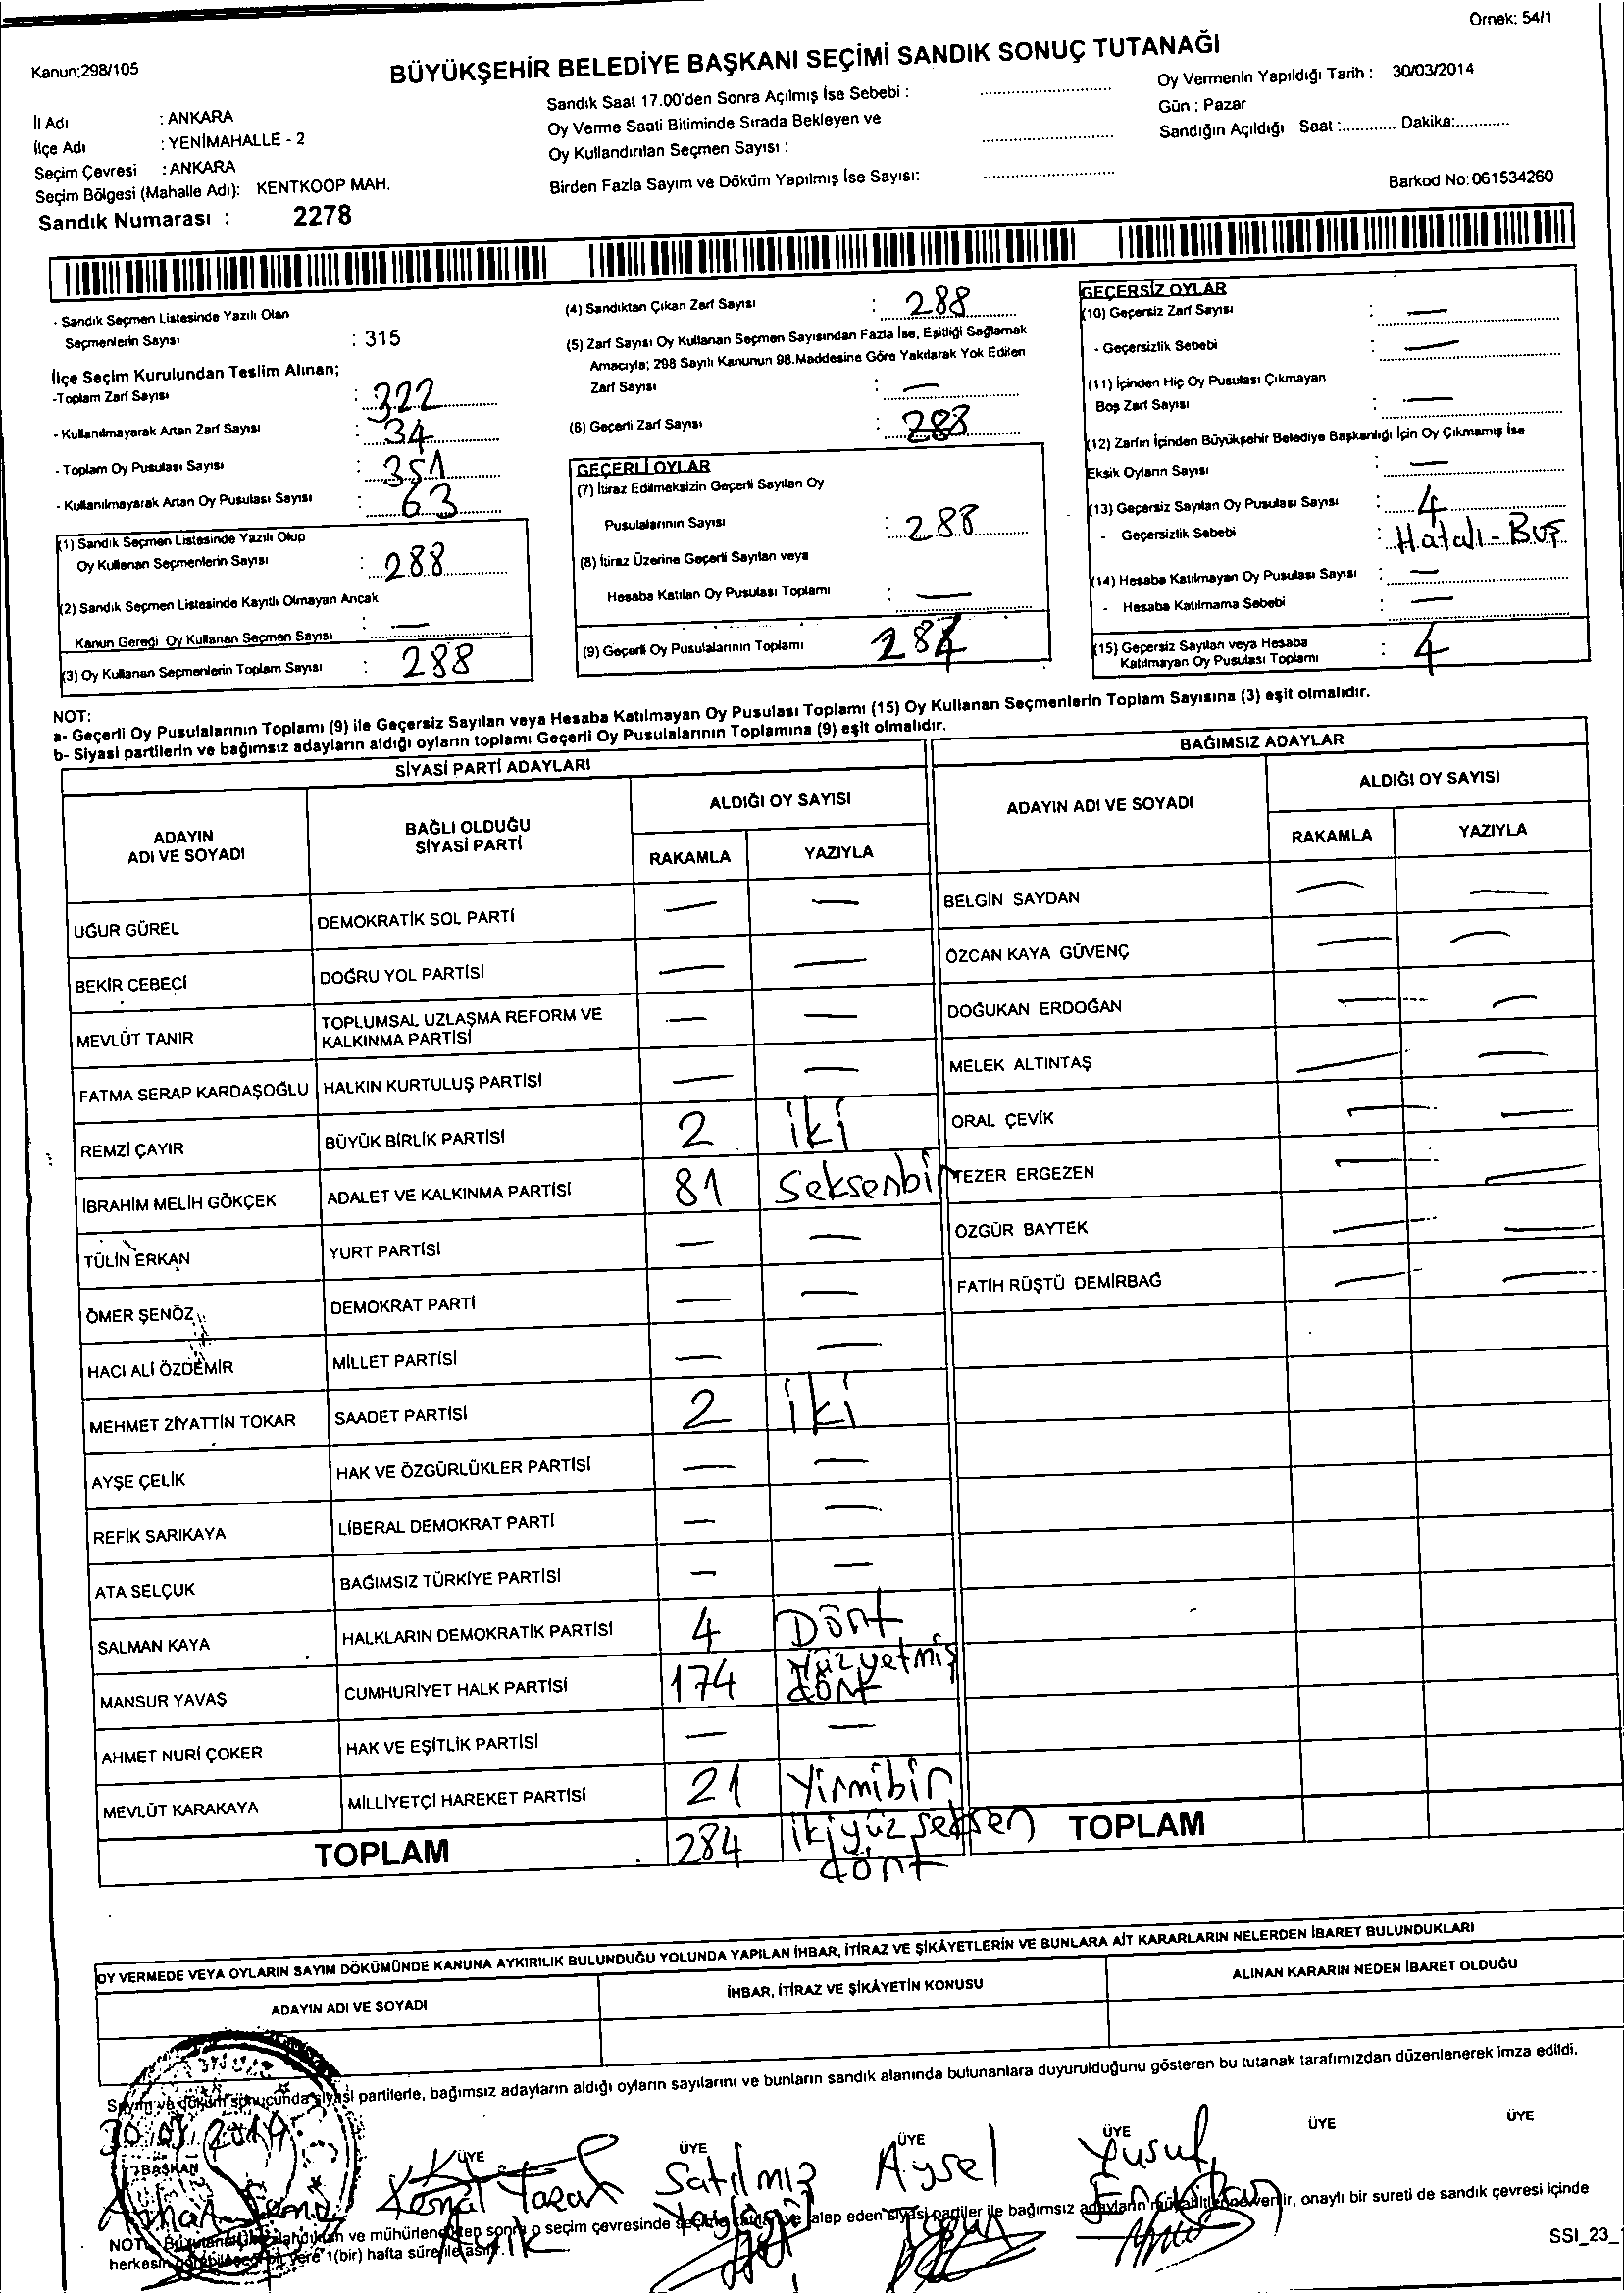 Örnek: 54/1
Kanun;298/105
BÜYÜKŞEHİR BELEDİYE BAŞKANI SEÇİMİ SANDIK SONUÇ TUTANAĞI
İl Adı : ANKARA
İlçe Adı : YENİMAHALLE - 2
Seçim Çevresi : ANKARA
Seçim Bölgesi (Mahalle Adı): KENTKOOP MAH.
Sandık Numarası : 2278
Sandık Saat 17.00'den Sonra Açılmış İse Sebebi :
Oy Verme Saati Bitiminde Sırada Bekleyen ve
Oy Kullandırılan Seçmen Sayısı :
Birden Fazla Sayım ve Döküm Yapılmış İse Sayısı:
Oy Vermenin Yapıldığı Tarih : 30/03/2014
Gün : Pazar
Sandığın Açıldığı Saat :............ Dakika:............
Barkod No: 061534260
- Sandık Seçmen Listesinde Yazılı Olan
Seçmenlerin Sayısı : 315
İlçe Seçim Kurulundan Teslim Alınan;
-Toplam Zarf Sayısı : 322
- Kullanılmayarak Artan Zarf Sayısı : 34
- Toplam Oy Pusulası Sayısı : 351
- Kullanılmayarak Artan Oy Pusulası Sayısı : 63
(1) Sandık Seçmen Listesinde Yazılı Olup
Oy Kullanan Seçmenlerin Sayısı : 288
(2) Sandık Seçmen Listesinde Kayıtlı Olmayan Ancak
Kanun Gereği Oy Kullanan Seçmen Sayısı : —
(3) Oy Kullanan Seçmenlerin Toplam Sayısı : 288
(4) Sandıktan Çıkan Zarf Sayısı : 288
(5) Zarf Sayısı Oy Kullanan Seçmen Sayısından Fazla İse, Eşitliği Sağlamak
Amacıyla; 298 Sayılı Kanunun 98.Maddesine Göre Yakılarak Yok Edilen
Zarf Sayısı : —
(6) Geçerli Zarf Sayısı : 288
GEÇERLİ OYLAR
(7) İtiraz Edilmeksizin Geçerli Sayılan Oy
Pusulalarının Sayısı : 288
(8) İtiraz Üzerine Geçerli Sayılan veya
Hesaba Katılan Oy Pusulası Toplamı : —
(9) Geçerli Oy Pusulalarının Toplamı 284
GEÇERSİZ OYLAR
(10) Geçersiz Zarf Sayısı : —
- Geçersizlik Sebebi : —
(11) İçinden Hiç Oy Pusulası Çıkmayan
Boş Zarf Sayısı : —
(12) Zarfın İçinden Büyükşehir Belediye Başkanlığı İçin Oy Çıkmamış İse
Eksik Oyların Sayısı : —
(13) Geçersiz Sayılan Oy Pusulası Sayısı : 4
- Geçersizlik Sebebi : Hatalı - Boş
(14) Hesaba Katılmayan Oy Pusulası Sayısı : —
- Hesaba Katılmama Sebebi : —
(15) Geçersiz Sayılan veya Hesaba
Katılmayan Oy Pusulası Toplamı : 4
NOT:
a- Geçerli Oy Pusulalarının Toplamı (9) ile Geçersiz Sayılan veya Hesaba Katılmayan Oy Pusulası Toplamı (15) Oy Kullanan Seçmenlerin Toplam Sayısına (3) eşit olmalıdır.
b- Siyasi partilerin ve bağımsız adayların aldığı oyların toplamı Geçerli Oy Pusulalarının Toplamına (9) eşit olmalıdır.
SİYASİ PARTİ ADAYLARI
ADAYIN
ADI VE SOYADI
BAĞLI OLDUĞU
SİYASİ PARTİ
ALDIĞI OY SAYISI
RAKAMLA YAZIYLA
UĞUR GÜREL DEMOKRATİK SOL PARTİ — —
BEKİR CEBECİ DOĞRU YOL PARTİSİ — —
MEVLÜT TANIR TOPLUMSAL UZLAŞMA REFORM VE
KALKINMA PARTİSİ — —
FATMA SERAP KARDAŞOĞLU HALKIN KURTULUŞ PARTİSİ — —
REMZİ ÇAYIR BÜYÜK BİRLİK PARTİSİ 2 iki
İBRAHİM MELİH GÖKÇEK ADALET VE KALKINMA PARTİSİ 81 Seksenbir
TÜLİN ERKAN YURT PARTİSİ — —
ÖMER ŞENÖZ DEMOKRAT PARTİ — —
HACI ALİ ÖZDEMİR MİLLET PARTİSİ — —
MEHMET ZİYATTİN TOKAR SAADET PARTİSİ 2 iki
AYŞE ÇELİK HAK VE ÖZGÜRLÜKLER PARTİSİ — —
REFİK SARIKAYA LİBERAL DEMOKRAT PARTİ — —
ATA SELÇUK BAĞIMSIZ TÜRKİYE PARTİSİ — —
SALMAN KAYA HALKLARIN DEMOKRATİK PARTİSİ 4 Dört
MANSUR YAVAŞ CUMHURİYET HALK PARTİSİ 174 Yüzyetmiş
dört
AHMET NURİ ÇOKER HAK VE EŞİTLİK PARTİSİ — —
MEVLÜT KARAKAYA MİLLİYETÇİ HAREKET PARTİSİ 21 Yirmibir
TOPLAM 284 ikiyüz seksen
dört
BAĞIMSIZ ADAYLAR
ADAYIN ADI VE SOYADI
ALDIĞI OY SAYISI
RAKAMLA YAZIYLA
BELGİN SAYDAN — —
ÖZCAN KAYA GÜVENÇ — —
DOĞUKAN ERDOĞAN — —
MELEK ALTINTAŞ — —
ORAL ÇEVİK — —
TEZER ERGEZEN — —
ÖZGÜR BAYTEK — —
FATİH RÜŞTÜ DEMİRBAĞ — —
TOPLAM
OY VERMEDE VEYA OYLARIN SAYIM DÖKÜMÜNDE KANUNA AYKIRILIK BULUNDUĞU YOLUNDA YAPILAN İHBAR, İTİRAZ VE ŞİKÂYETLERİN VE BUNLARA AİT KARARLARIN NELERDEN İBARET BULUNDUKLARI
ADAYIN ADI VE SOYADI İHBAR, İTİRAZ VE ŞİKÂYETİN KONUSU ALINAN KARARIN NEDEN İBARET OLDUĞU
Sayım ve döküm sonucunda siyasi partilerle, bağımsız adayların aldığı oyların sayılarını ve bunların sandık alanında bulunanlara duyurulduğunu gösteren bu tutanak tarafımızdan düzenlenerek imza edildi.
30.03.2014
BAŞKAN ÜYE ÜYE ÜYE ÜYE ÜYE ÜYE
Kemal Satılmış Aysel Yusuf
NOT: ve mühürlendikten sonra o seçim çevresinde talep eden siyasi partiler ile bağımsız adayların onaylı bir sureti de sandık çevresi içinde
herkesin bir yere 1(bir) hafta süre ile asılır.
SSI_23_